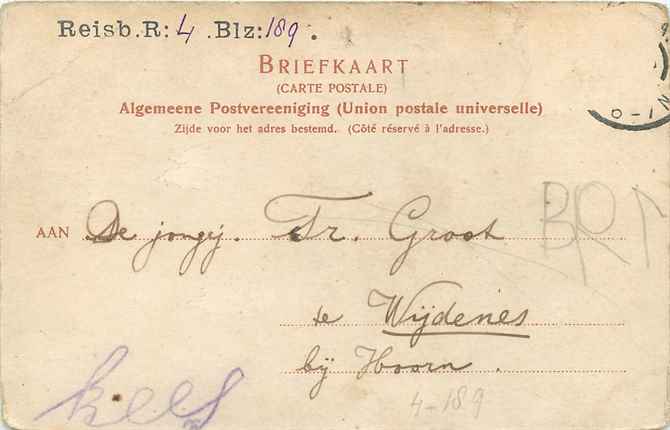 Reisb.R: 4 .Blz: 189 .
BRIEFKAART
(CARTE POSTALE)
Algemeene Postvereeniging (Union postale universelle)
Zijde voor het adres bestemd. (Côté réservé à l'adresse.)
AAN De jongej. Tr. Groot
BRM
te Wijdenes
bij Hoorn.
kees
4-189